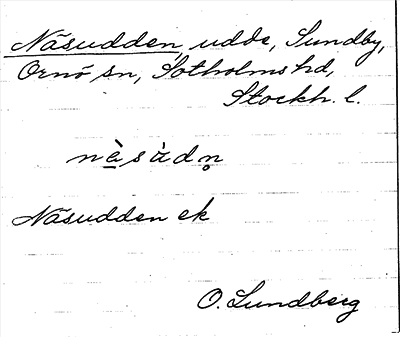 Näsudden, udde, Sundby,
Ornö sn, Sotholms hd,
Stockh. l.
nä̀sàdn̥
Näsudden ek
O. Lundberg